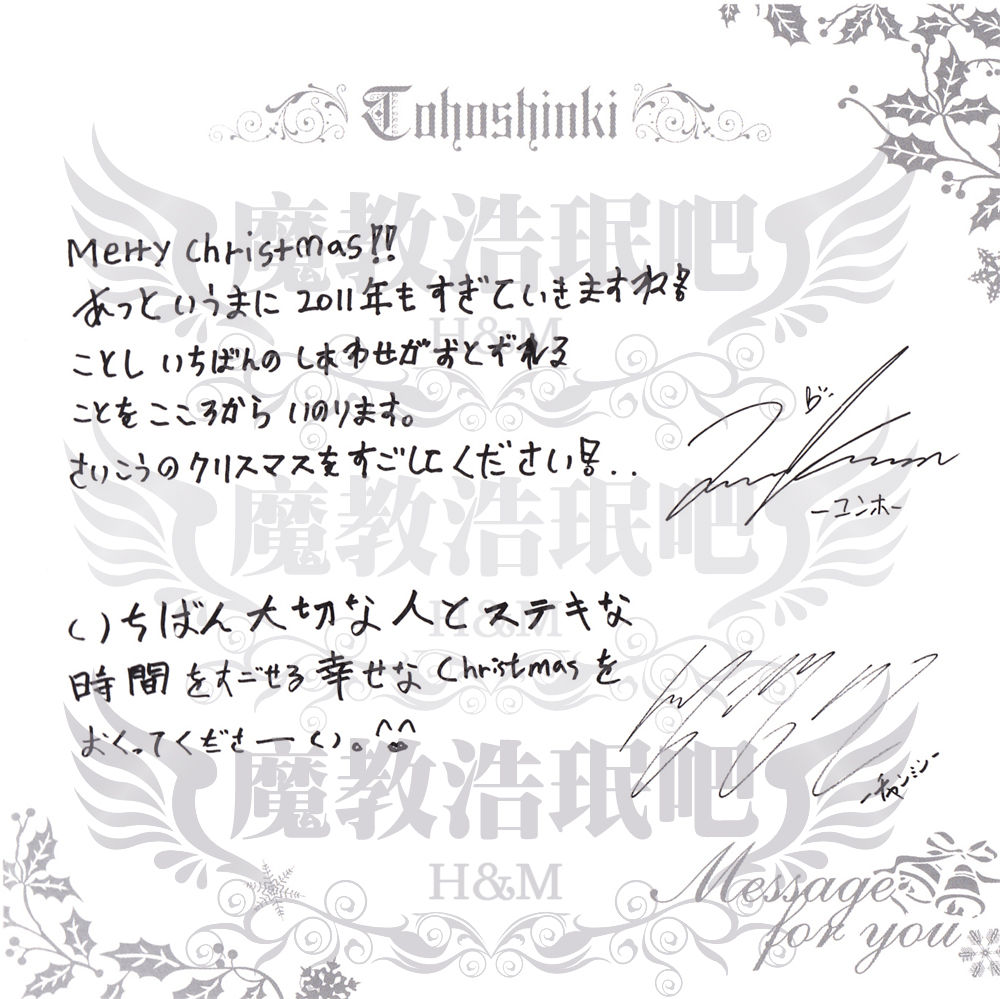 Tohoshinki
魔教浩珉吧
H&M
Merry Christmas!!
あっというまに 2011年もすぎていきますね!!
ことし いちばんの しあわせがおとずれる
ことを こころから いのります。
さいこうのクリスマスをすごしてください!!..
ーユンホー
魔教浩珉吧
H&M
いちばん大切な人とステキな
時間をすごせる幸せなChristmasを
おくってくださーい。^^
ーチャンミンー
魔教浩珉吧
H&M
Message
for you